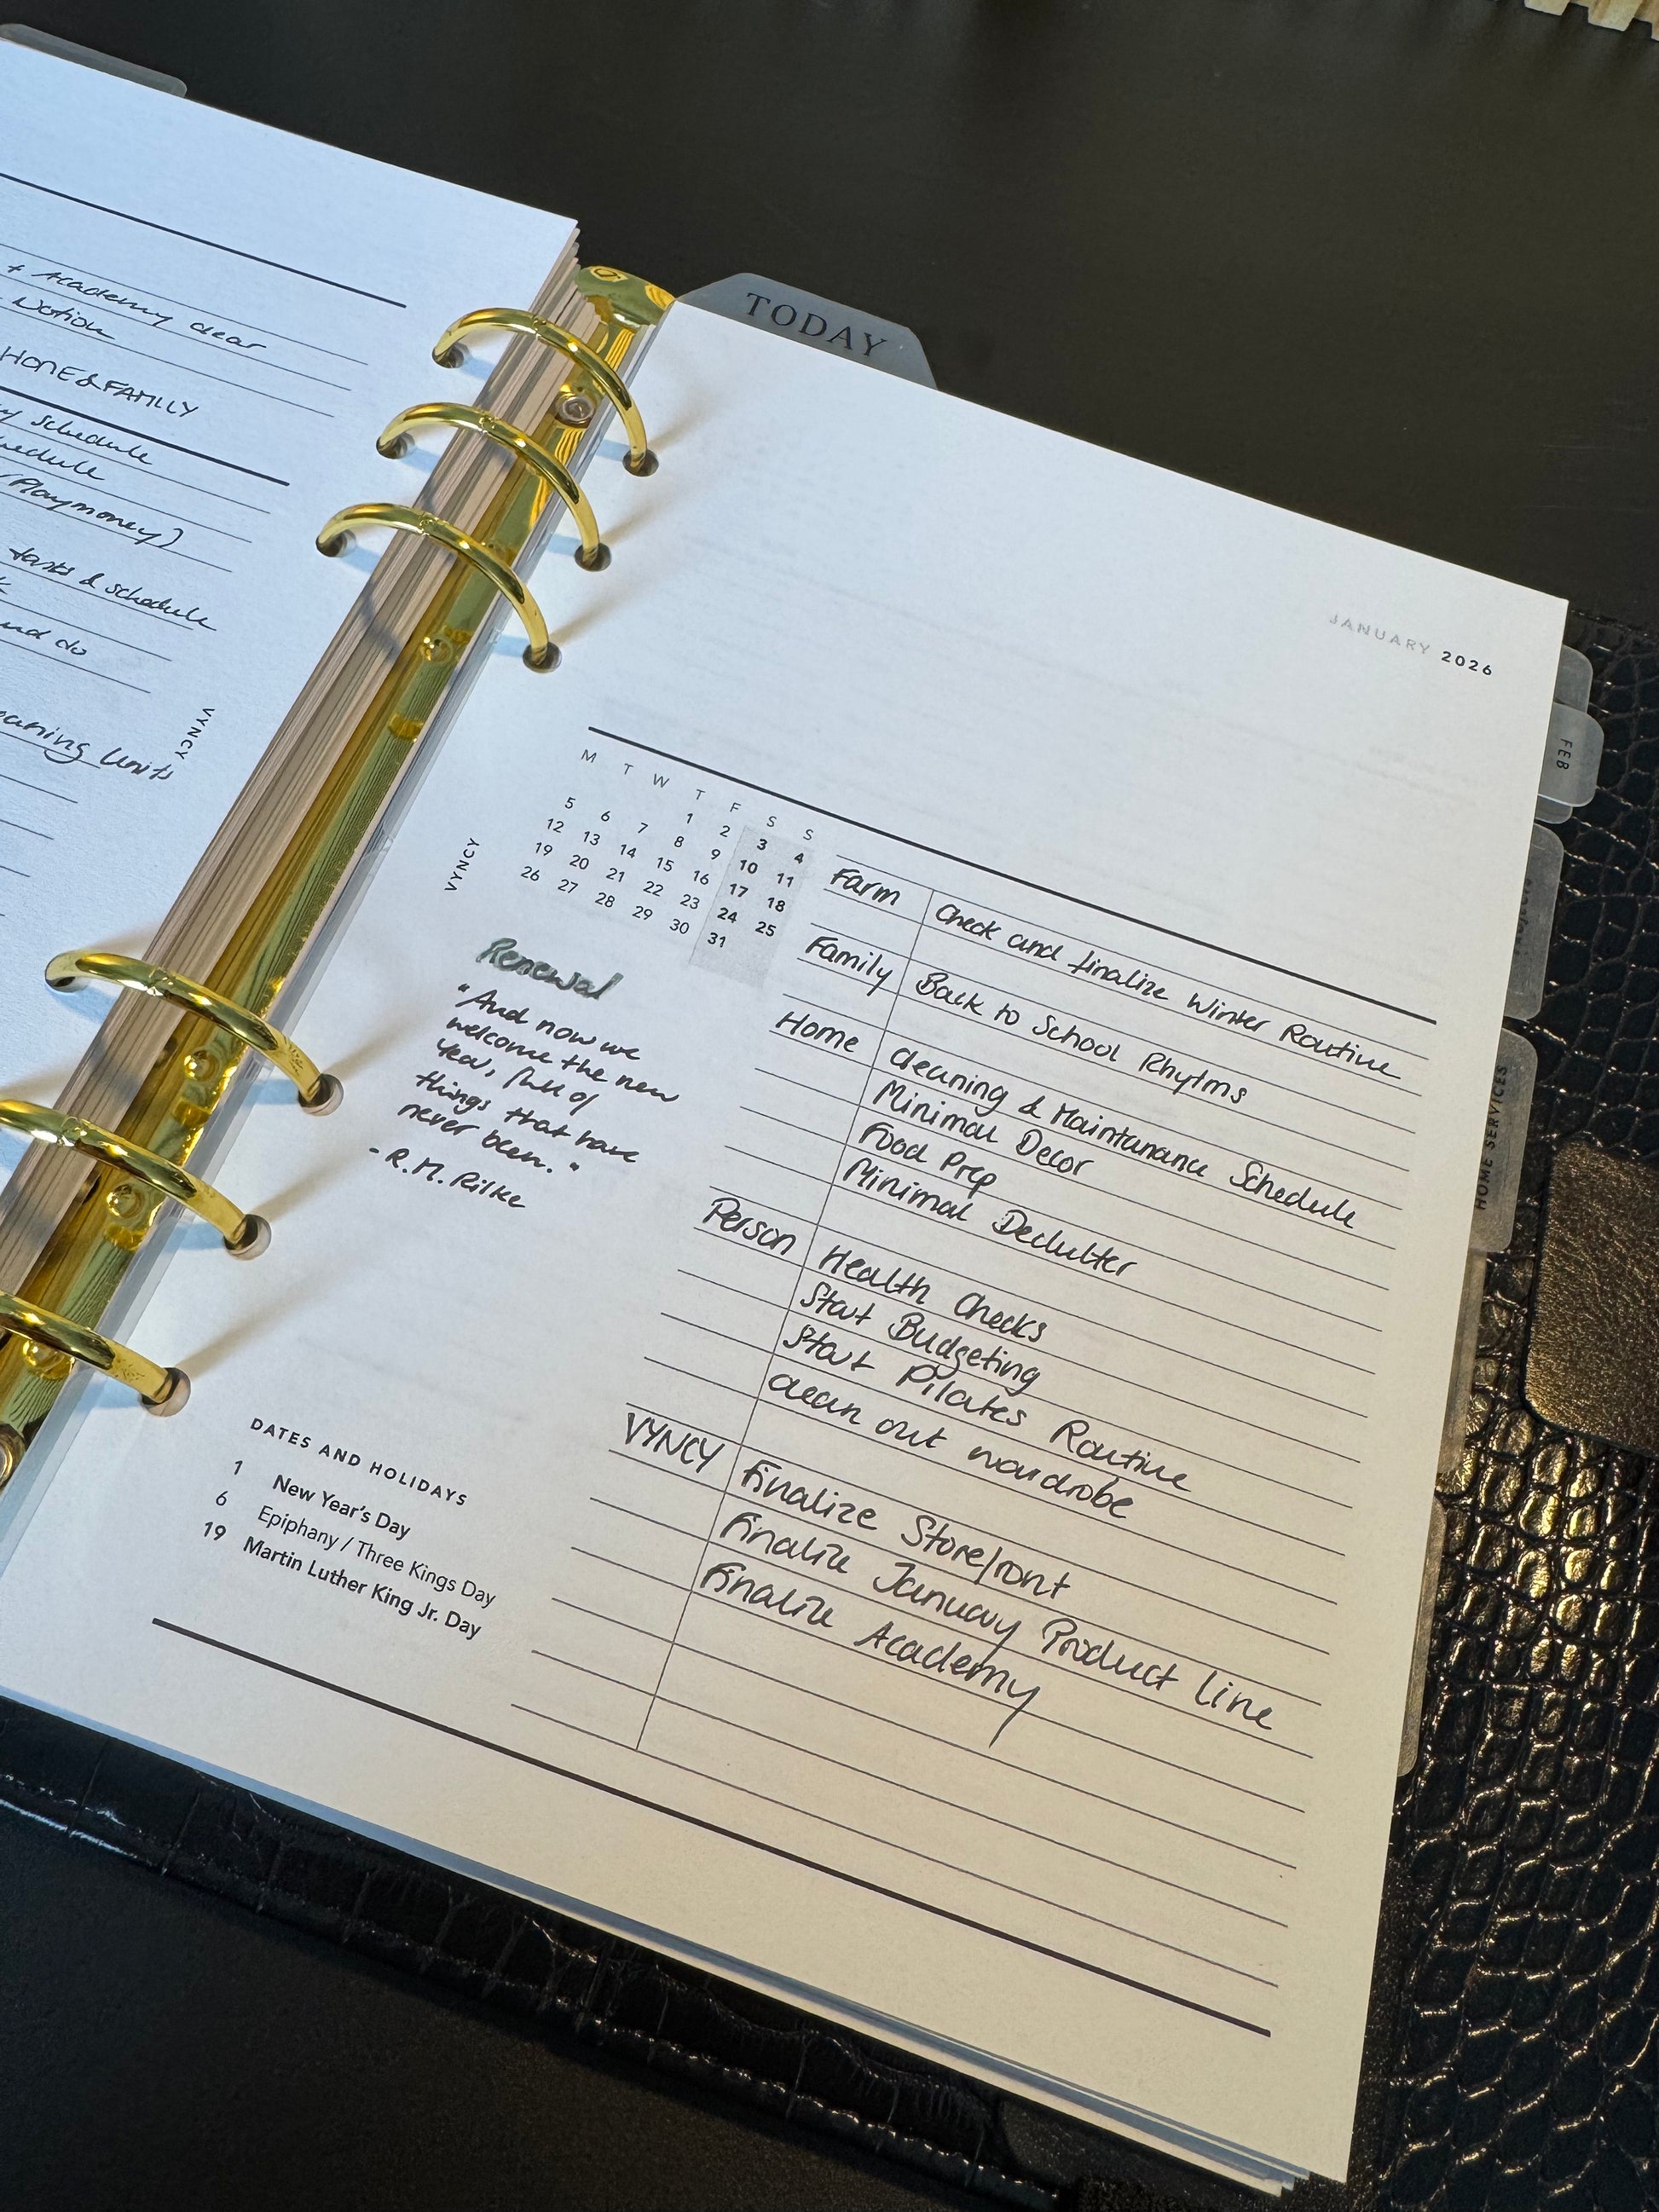 + Academy clear
Notion
HOME & FAMILY
schedule
(Playmoney)
tasks & schedule
and do
Units
VYNCY
TODAY
JANUARY 2026
FEB
HOME SERVICES
VYNCY
M T W T F S S
1 2 3 4
5 6 7 8 9 10 11
12 13 14 15 16 17 18
19 20 21 22 23 24 25
26 27 28 29 30 31
Renewal
"And now we
welcome the new
Year, full of
things that have
never been."
- R.M. Rilke
DATES AND HOLIDAYS
1 New Year's Day
6 Epiphany / Three Kings Day
19 Martin Luther King Jr. Day
Farm Check and finalize Winter Routine
Family Back to School Rhytms
Home Cleaning & Maintanance Schedule
Minimal Decor
Food Prep
Minimal Declutter
Person Health Checks
Start Budgeting
Start Pilates Routine
Clean out wardrobe
VYNCY Finalize Storefront
Finalize January Product Line
Finalize Academy